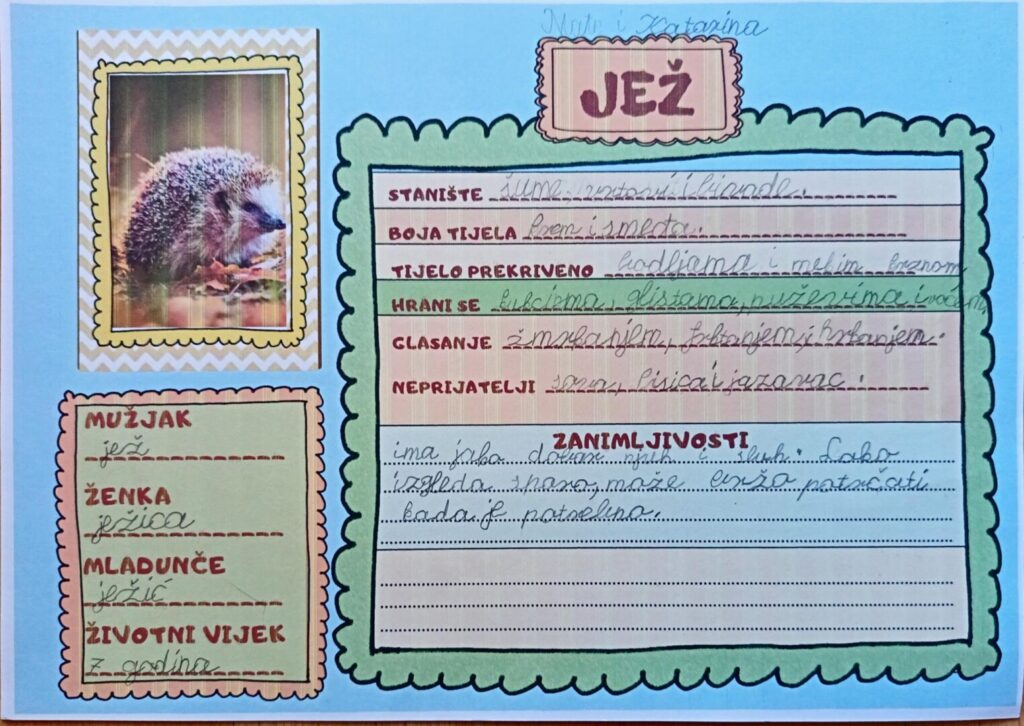 i Katarina
JEŽ
STANIŠTE šume, vrtovi i livade.
BOJA TIJELA krem i smeđa.
TIJELO PREKRIVENO bodljama i mekim krznom
HRANI SE kukcima, glistama, puževima i voćem
GLASANJE žmrkanjem, frktanjem, i
NEPRIJATELJI sova, lisica i jazavac.
MUŽJAK
jež
ŽENKA
ježica
MLADUNČE
ježić
ŽIVOTNI VIJEK
7 godina
ZANIMLJIVOSTI
ima jako dobar njuh i sluh. Iako
izgleda sporo, može brzo potrčati
kada je potrebno.